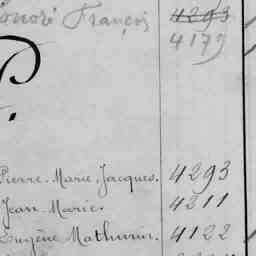 Honoré François 4293
4179
P.
Pierre Marie Jacques. 4293
Jean Marie. 4211
Eugène Mathurin. 4122